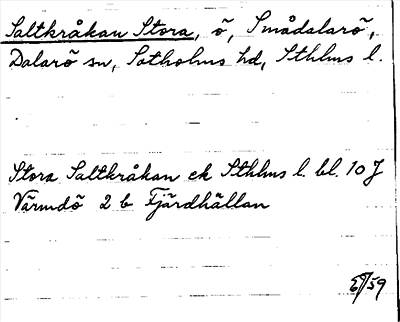 Saltkråkan Stora, ö, Smådalarö,
Dalarö sn, Sotholms hd, Sthlms l.
Stora Saltkråkan ek Sthlms l. bl. 10 J
Värmdö 2 b Fjärdhällan